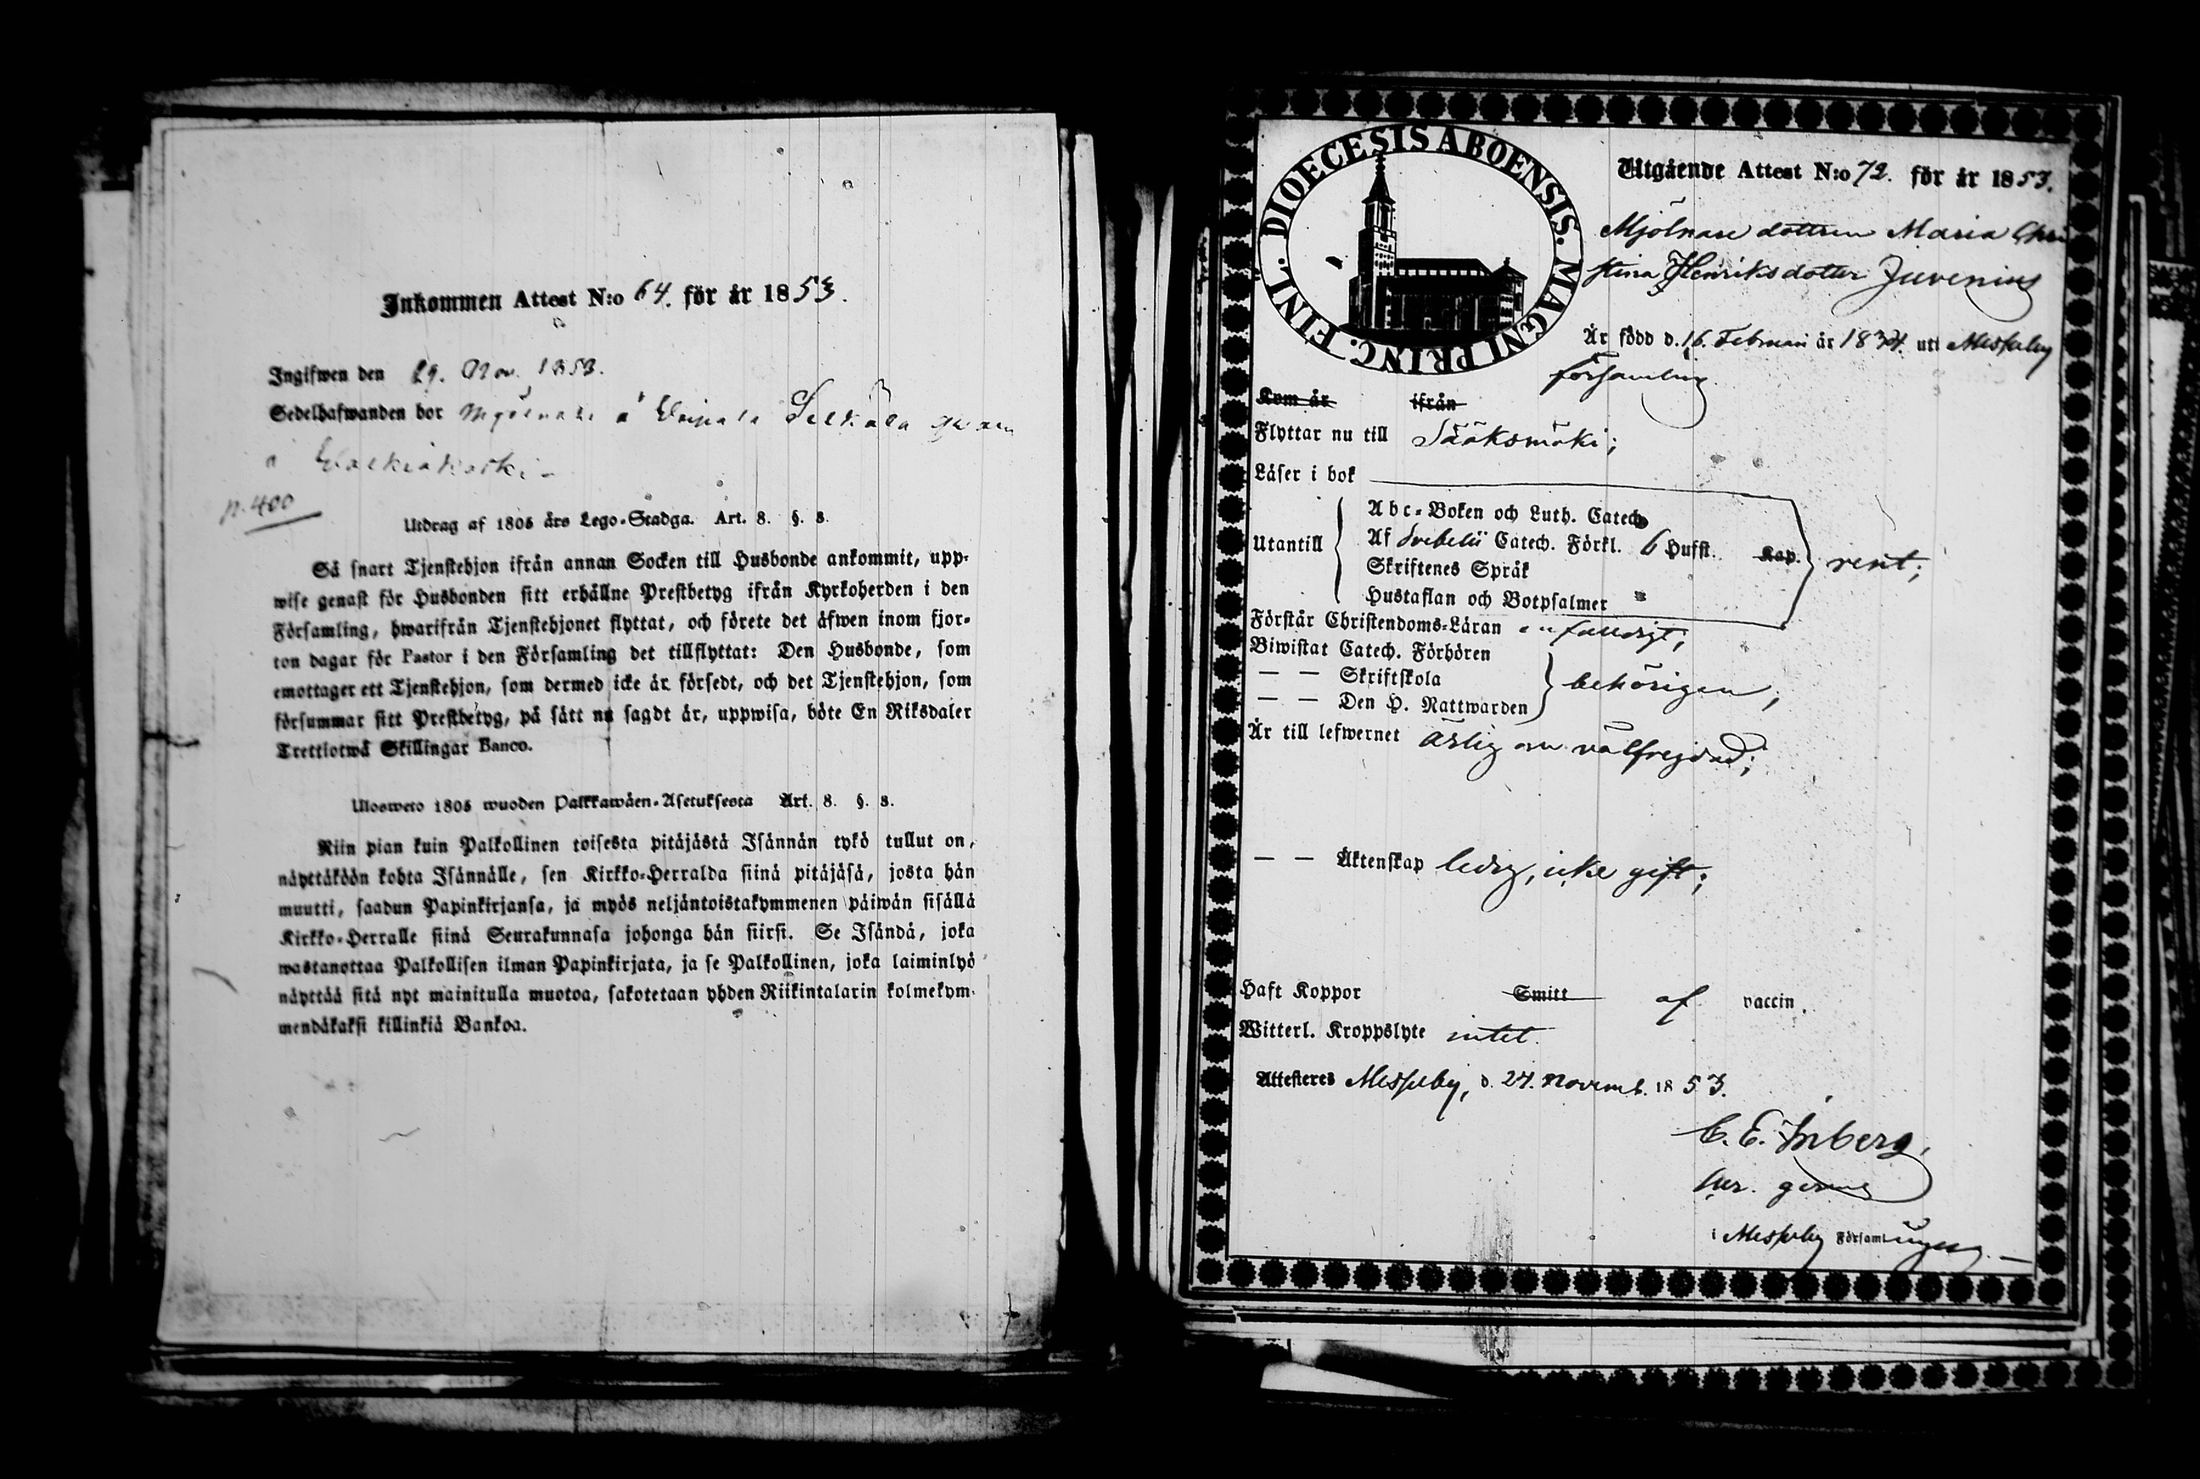 Inkommen Attest N:o 64. för år 1853.
Ingifwen den 29. Nov. 1853.
Sedelhafwanden bor
p. 400
Utdrag af 1805 års Lego-Stadga. Art. 8. §. 8.
Så snart Tjenstehjon ifrån annan Socken till Husbonde ankommit, upp-
wise genast för Husbonden sitt erhållne Prestbetyg ifrån Kyrkoherden i den
Församling, hwarifrån Tjenstehjonet flyttat, och förete det äfwen inom fjor-
ton dagar för Pastor i den Församling det tillflyttat: Den Husbonde, som
emottager ett Tjenstehjon, som dermed icke är försedt, och det Tjenstehjon, som
försummar sitt Prestbetyg, på sätt nu sagdt är, uppwisa, böte En Riksdaler
Trettiotwå Skillingar Banco.
Ulosweto 1805 wuoden Palkkawäen-Asetuksesta Art. 8. §. 8.
Niin pian kuin Palkollinen toisesta pitäjästä Isännän tykö tullut on,
näyttäköön kohta Isännälle, sen Kirkko-Herralda siinä pitäjäsä, josta hän
muutti, saadun Papinkirjansa, ja myös neljäntoistakymmenen päiwän sisällä
Kirkko-Herralle siinä Seurakunnasa johonga hän siirsi. Se Isändä, joka
wastanottaa Palkollisen ilman Papinkirjata, ja se Palkollinen, joka laiminlyö
näyttää sitä nyt mainitulla muotoa, sakotetaan yhden Riikintalarin kolmekym-
mendäkaksi killinkiä Bankoa.
DIOECESIS ABOENSIS. MAGNI PRINC. FINL.
Utgående Attest N:o 72. för år 1853.
Mjölnare dottren Maria Chri
stina Henriksdotter Juvenius
Är född d. 16. Februari år 1834. uti Messuby
församling
Kom år ifrån
Flyttar nu till Sääksmäki;
Läser i bok
Abc-Boken och Luth. Catech.
Utantill Af Svebelii Catech. Förkl. 6 Hufst. Kap. rent;
Skriftenes Språk
Hustaflan och Botpsalmer
Förstår Christendoms-Läran enfaldigt;
Biwistat Catech. Förhören
— — Skriftskola behörigen;
— — Den H. Nattwarden
Är till lefwernet ärlig och välfrejdad;
— — Äktenskap ledig, icke gift;
Haft Koppor Smitt af vaccin.
Witterl. Kroppslyte intet.
Attesteres Messuby, d. 27. Novemb. 1853.
C. E.
i Messuby Församlingen.